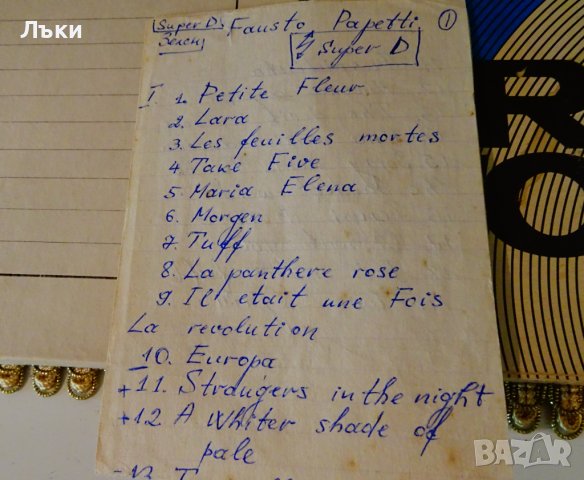 Лъки
Super D
Зелен
Fausto Papetti
1
Super D
I 1. Petite Fleur
2. Lara
3. Les feuilles mortes
4. Take Five
5. Maria Elena
6. Morgen
7. Tuff
8. La panthere rose
9. Il etait une Fois
La revolution
10. Europa
+11. Strangers in the night
+12 A Whiter shade of
pale
13.
R
O
BAZAR
bg